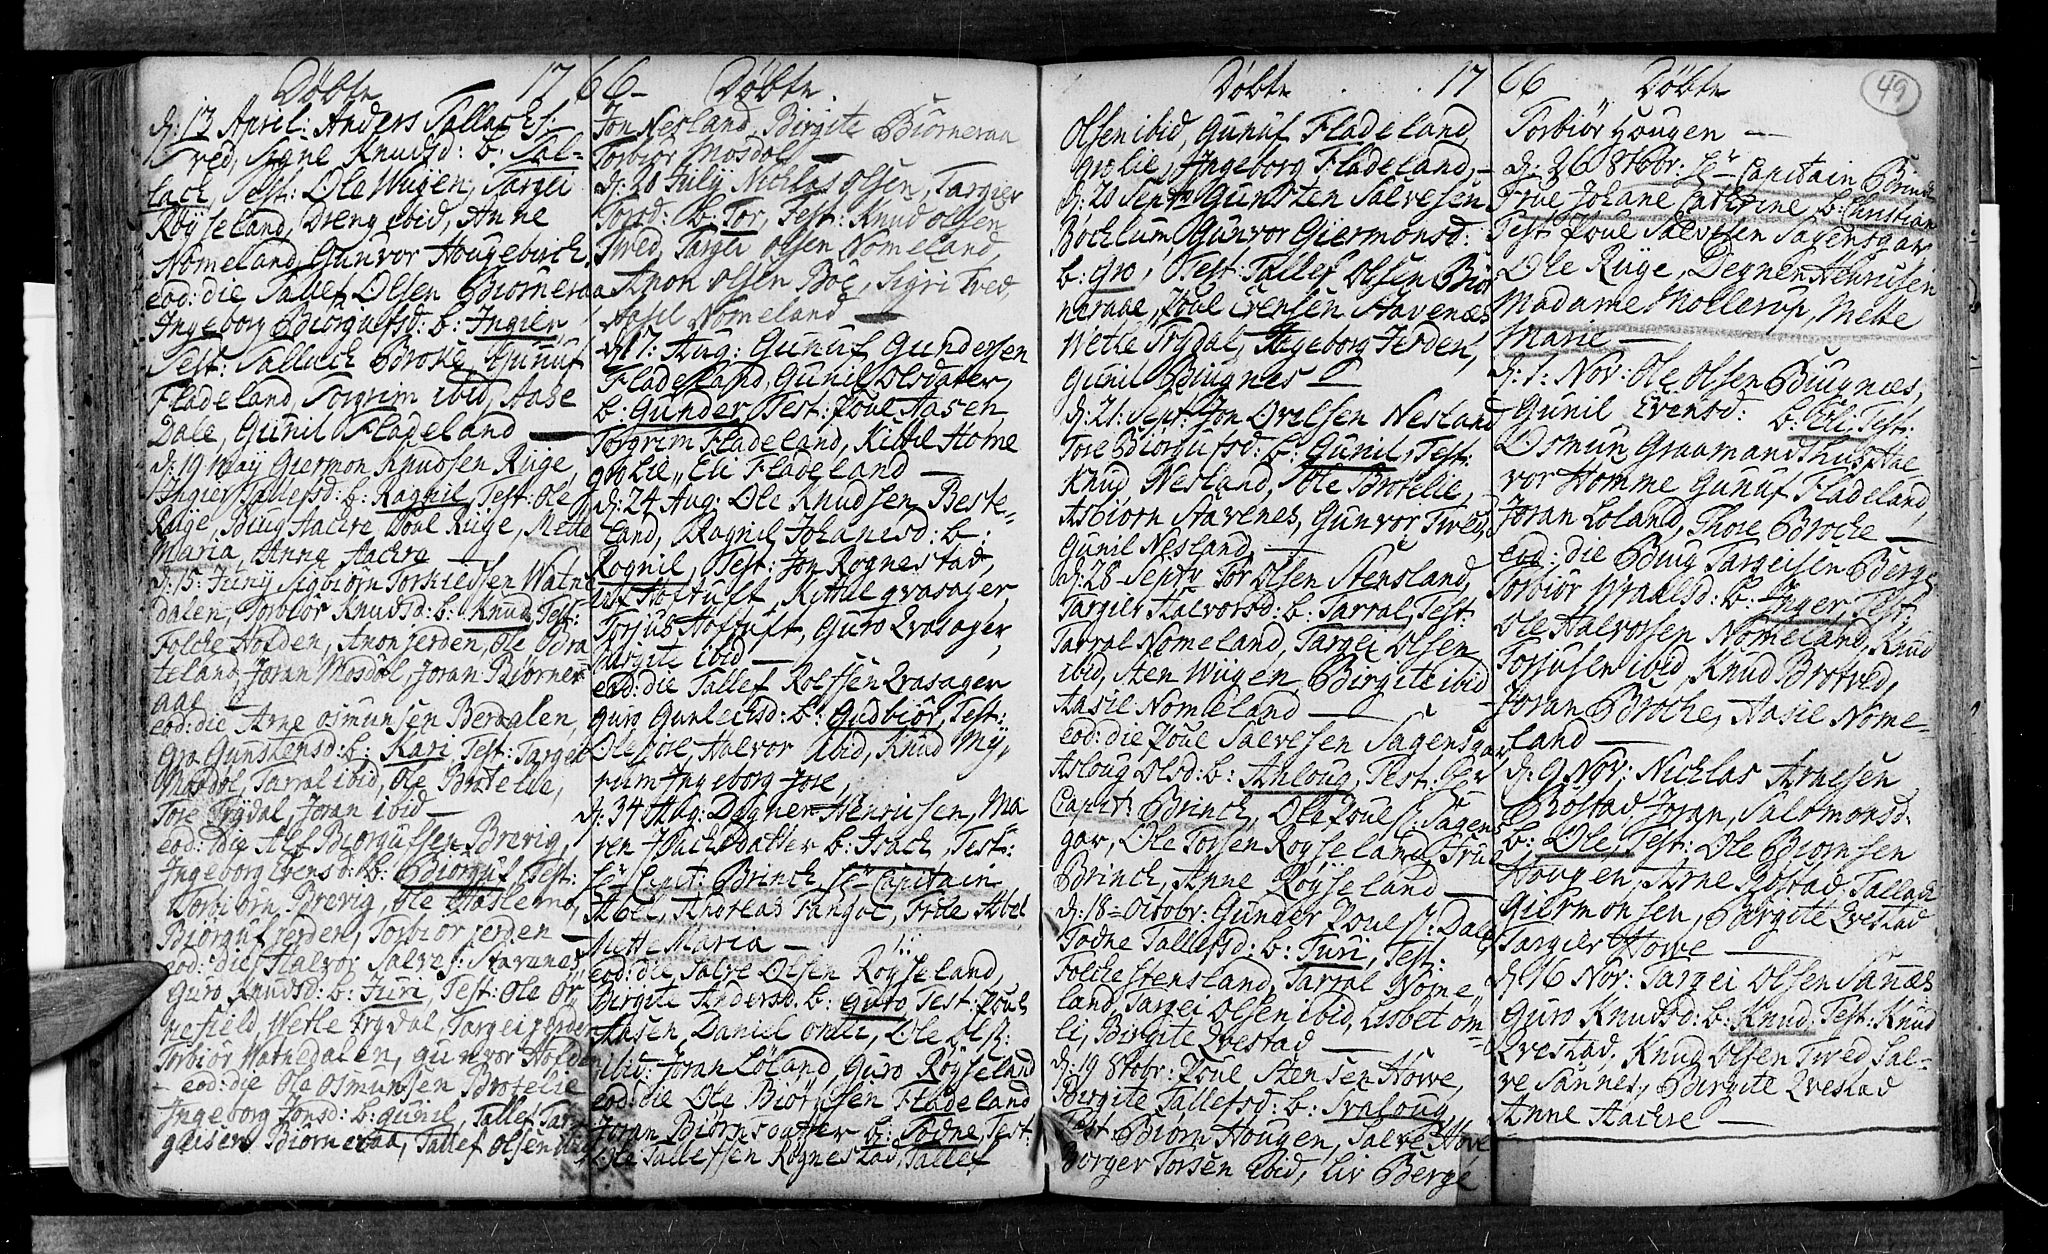 Døbte 1766 Døbte
d: 13 April: Anders Tallachs:
Tved, Signe Knudsd: b: Tal-
lach, Test: Ole Wiigen, Targei
Røyseland, Dreng ibid, Anne
Nomeland, Gunvor Hougebirch,
eod: die Tallef Olsen Biorneraa
Ingeborg Biorgufsd: b: Ingier
Test: Tallach Broke, Gunuf
Fladeland, Torgrim ibid, Aase
Dale, Gunil Fladeland —
d: 19 May Giermon Knudsen Rüge
Ingier Tallefsd: b: Ragnil, Test: Ole
Rüge, Biug Aachre, Poul Rüge, Mette
Maria, Anne Aachre —
d: 15: Junÿ Sigbiorn Torkieldsen Watne
dalen, Torbior Knudsd: b: Knud, Test:
Folche Holden, Anon jerden, Ole Bra-
teland, Joran Mosdøl, Joran Biørner-
aae
eod: die Arne Osmunsen Berdalen,
Gro Gunstensd: b: Kari Test: Targei
Mosdøl, Tarral ibid, Ole Brotelie,
Tore Trÿdal, Joran ibid —
eod: die Alf Biorgufsen Brevig,
Ingeborg Evensd: b: Biorguf Test:
Torbiörn Brevig, Ole Haslemo,
Biørguf jerden, Torbiör jerden —
eod: die Halvor Salves: Stavenes
Guro Knudsd: b: Juri, Test: Ole Ör-
nefield, Wetle Trydal, Targei jerden
Torbiör Watnedalen, Gunvor Holden
— eod: die Ole Osmunsen Brotelie
Ingeborg Jonsd: b: Gunil, Tallef Tar-
geisen Biorneraa, Tallef Olsen
Jon Nesland, Birgite Biorneraa
Torbiör Mosdøl —
d: 20 Julÿ Nicklas Olsen, Targier
Torsd: b: Tor, Test: Knud Olsen
Tved, Targei Olsen Nomeland,
Anon Olsen Boe, Sigri Tved,
Aasil Nomeland —
d: 17: Aug: Gunuf Gundersen
Fladeland, Gunil Olsdater,
b: Gunder, Test: Poul Aasen
Torgrim Fladeland, Kittil Home
Grolie, Eli Fladeland —
d: 24 Aug: Ole Knudsen Beste-
land, Ragnil Johanisd: b:
Rognil, Test: Jon Rognestad,
Alf Hoftuft, Kittil Qvasager,
Torjus Hoftuft, Guro Qvasager,
Birgite ibid —
eod: die Tallef Rolfsen Qvasager
Guro Gunleichsd: b: Gudbiör, Test:
Ole jore, Halvor ibid, Knud Mÿ-
rum Ingeborg jore,
d: 34 Aug: Degnen Henrichsen, Ma
ren Isachsdatter b: Isach, Test:
Hr Capit: Brinch, Hr Capitain
Abel, Andreas Tangoe, Frue Abel
Mette Maria —
eod: die Salve Olsen Røyseland,
Birgite Andersd: b: Guro Test: Poul
Aasen, Daniel omli, Ole Ols:
ibid: Joran Løland, Guro Røyseland
eod: die Ole Biørnsen Fladeland
Joran Biørnsdatter b: Todne, Test:
Ole Tallefsen Rognestad, Tallef
Døbte 1766 Døbte 49
Olsen ibid, Gunuf Fladeland,
Grolie, Ingeborg Fladeland, —
d: 20 Septr Gunsten Salvesen
Bochlum, Gunvor Giermonsd:
b: Gro, Test: Tallef Olsen Bior
neraae, Poul Evensen Stavenæs
Wetle Trydal, Ingeborg Jerden,
Gunil Biugnes —
d: 21: Sept: Jon Orelsen Nesland
Tore Biorgufsd: b: Gunil, Test:
Knud Nesland, Ole Brotelie,
Asbiorn Stavenes, Gunvor Tved,
Gunil Nesland, —
d: 28 Septr Tor Olsen Stensland,
Targier Halvorsd: b: Tarral, Test:
Tarral Nomeland, Targei Olsen
ibid, Sten Wiigen, Birgite ibid
Aasie Nomeland —
eod: die Poul Salvesen Sagensgar
Asloug Olsd: b: Anloug, Test: Her
Capit: Brinch, Ole Pouls: Sagens
gar, Ole Torsen Royseland, Frue
Brinch, Anne Röyseland —
d: 18 Octobr: Gunder Pouls: Dale
Todne Tallefsd: b: Turi, Test:
Folche Stensland, Tarral Nome-
land, Targei Olsen ibid, Lisbet om-
li, Birgite Qvestad —
d: 19 8tobr: Poul Stensen Howe,
Birgite Tallefsd: b: Svaloug
Test Biorn Hougen, Salve Hove
Borger Torsen ibid, Liv Berge
Torbiör Hougen —
d: 26 8tobr: Hr Capitain Brinch
Frue Johane Cathrine, b: Christian
Test: Poul Salvesen Sagensgar
Ole Rüge, Degnen Henrichsen
Madame Mollerup, Mette
Marie —
d: 1: Nov: Ole Olsen Biugnæs,
Gunil Evensd: b: Eli, Test:
Osmun Graamand Thus,
vor Homme Gunuf Fladeland,
Joran Loland, Thore Broche —
eod: die Biug Targeisen Berge
Torbiör b: Inger Test:
Ole Halvorsen Nomeland, Knud
Torjusen ibid, Knud Brotved,
Joran Broche, Aasie Nome-
land —
d: 9 Nov: Nicklas Arnesen
Bostad Joran, Salomonsd:
b: Ole, Test: Ole Biornsen
Hougen, Arne Röstad, Tallach
Giermonsen, Birgite Qvestad
Targier Howe —
d: 16 Nov: Targei Olsen Sannæs
Guro Knudsd: b: Knud, Test: Knud
Qvestad, Knud Olsen Tved, Sal-
ve Sannes, Birgite Qvestad
Anne Aachre —